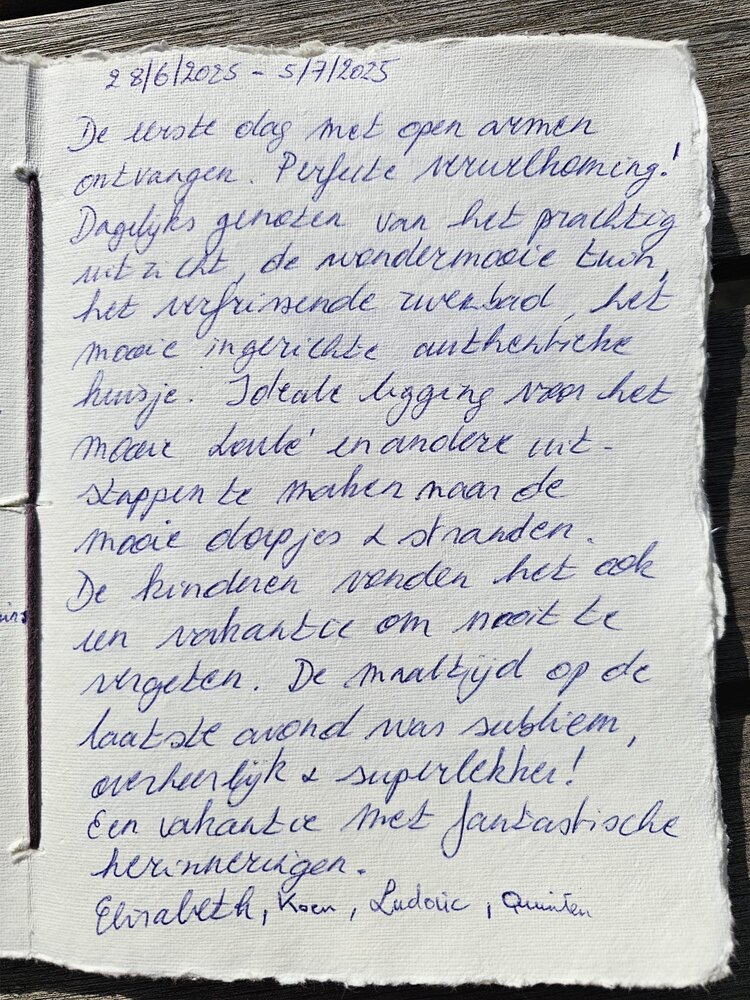 28/6/2025 - 5/7/2025
De eerste dag met open armen
ontvangen. Perfecte verwelkoming!
Dagelijks genoten van het prachtig
uitzicht, de wondermooie tuin,
het verfrissende zwembad, het
mooie ingerichte authentieke
huisje. Ideale ligging voor het
mooie Loulé en andere uit-
stappen te maken naar de
mooie dorpjes & stranden.
De kinderen vonden het ook
een vakantie om nooit te
vergeten. De maaltijd op de
laatste avond was subliem,
overheerlijk & superlekker!
Een vakantie met fantastische
herinneringen.
Elisabeth, Koen, Ludovic, Quinten